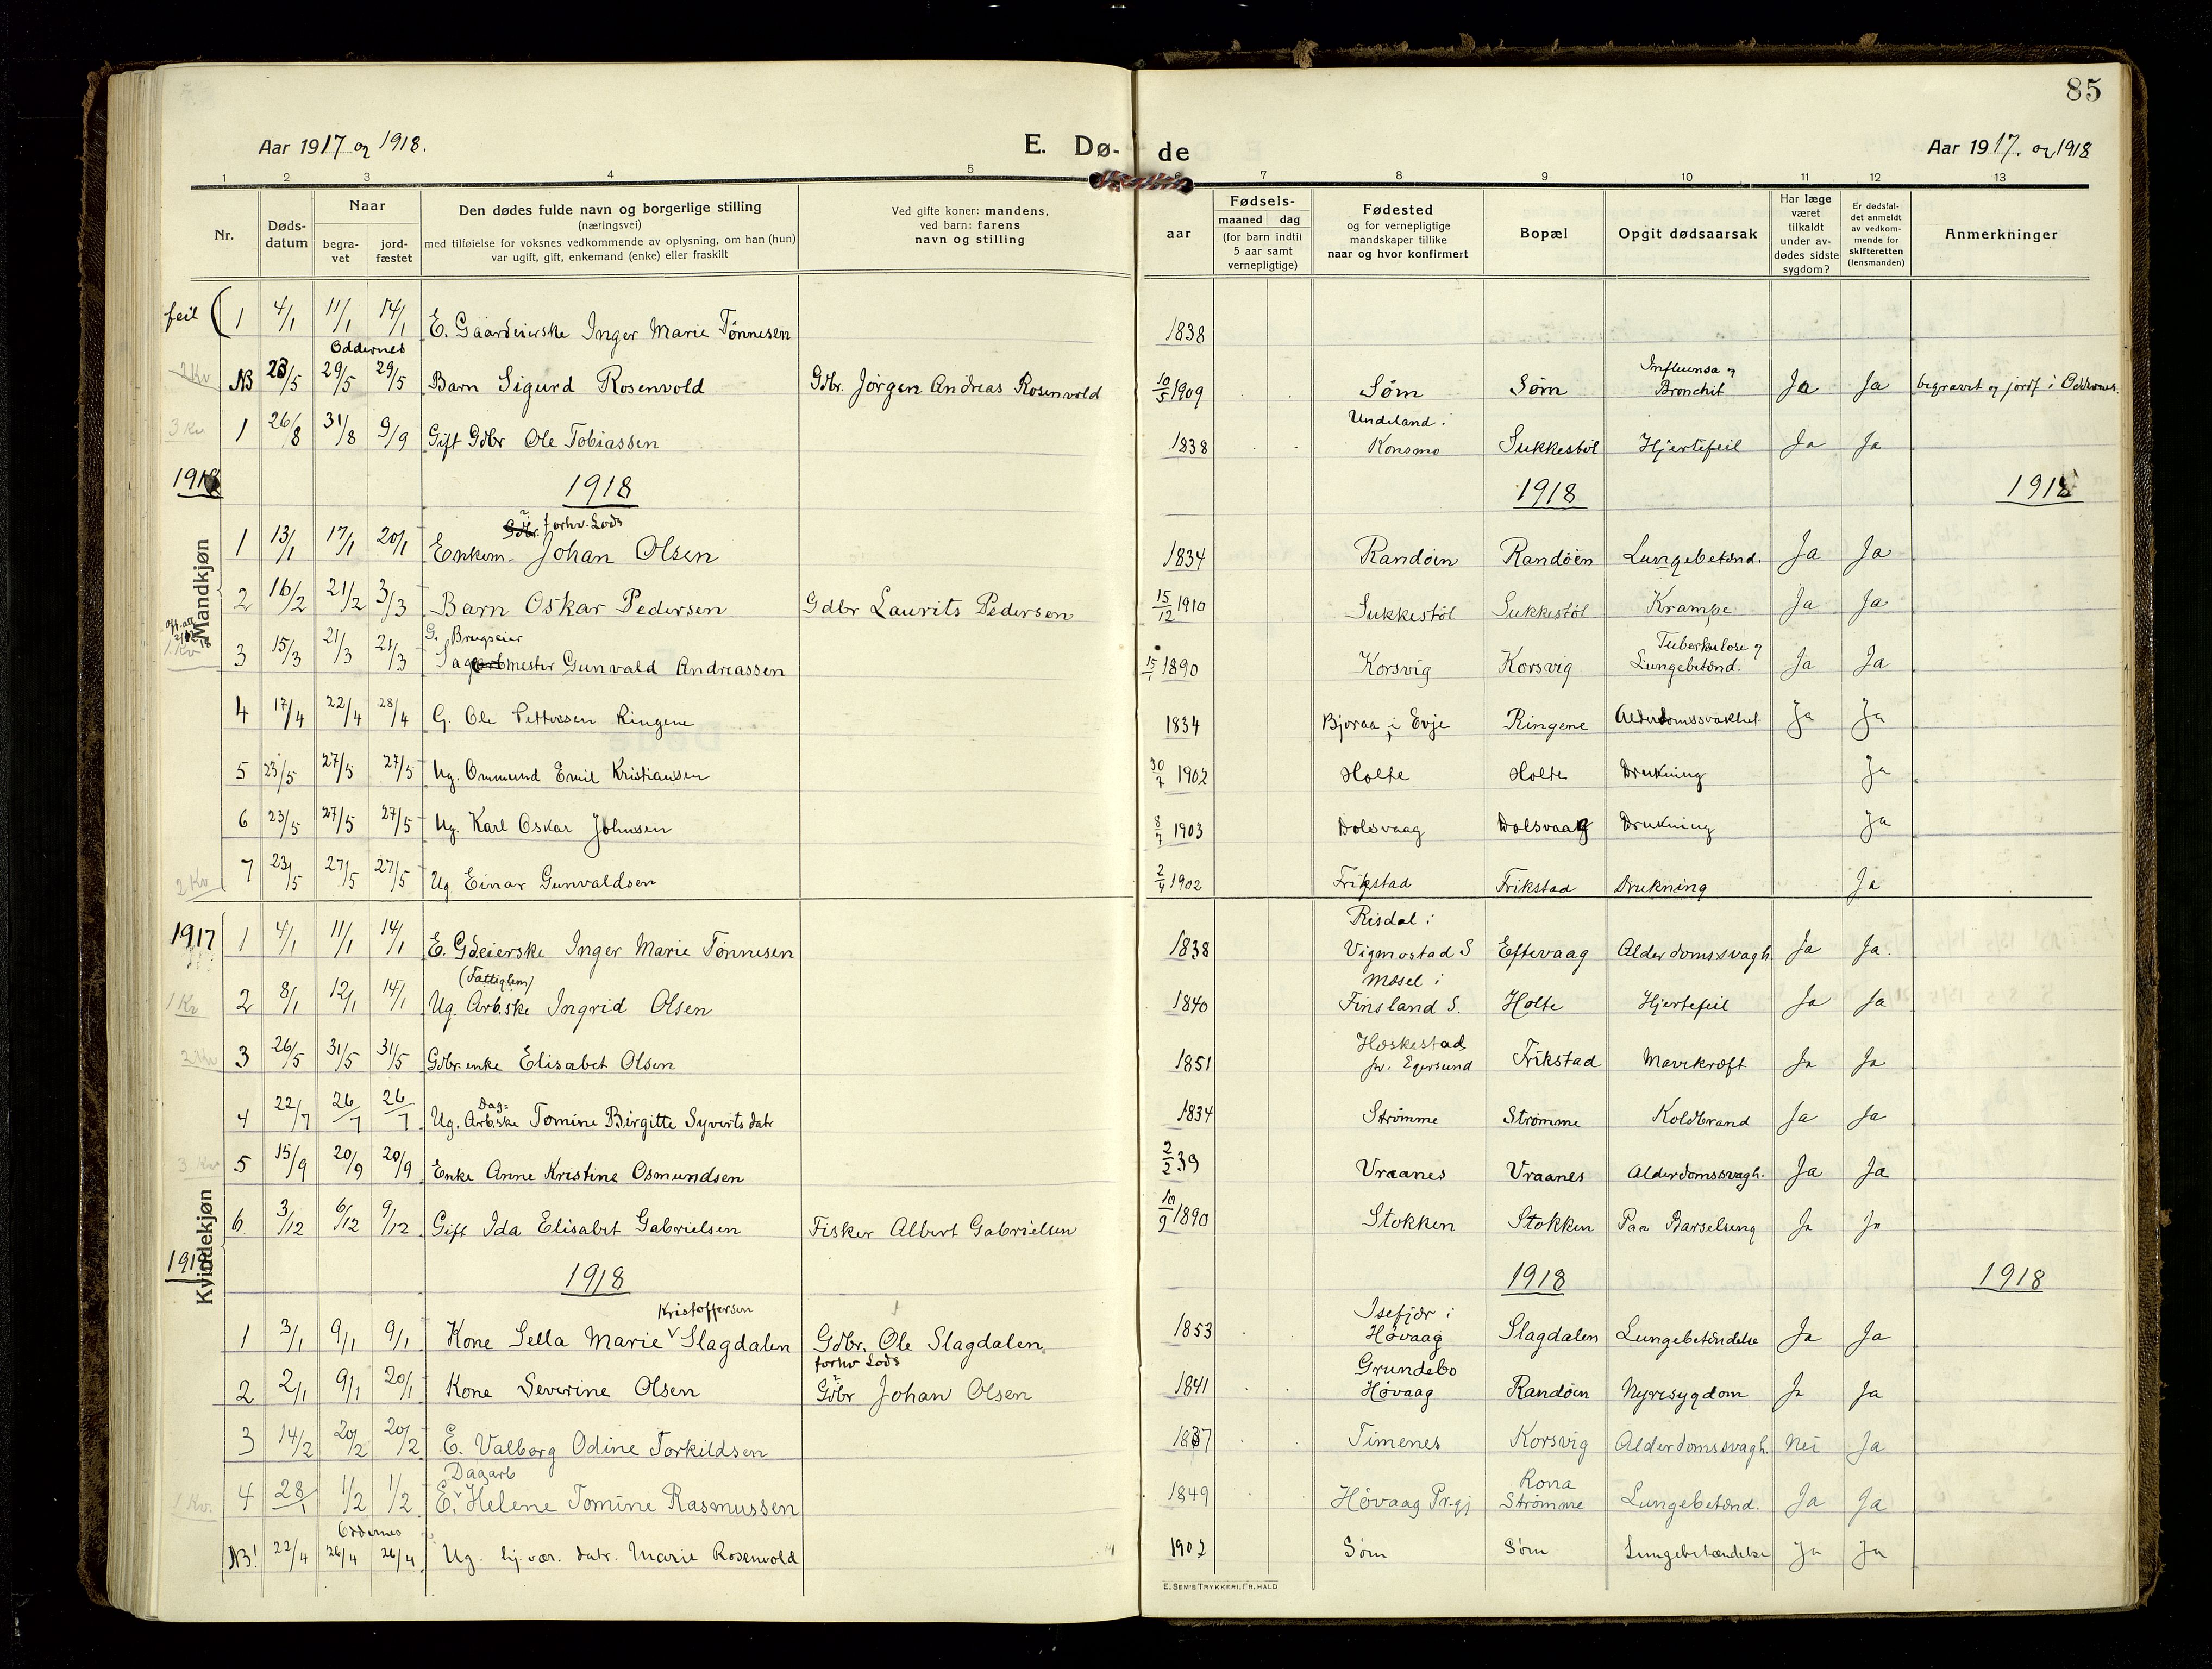 85
Aar 1917 og 1918.
E. Dø-
de
Aar 1917. og 1918
1 2 3 4 5 7 8 9 10 11 12 13
Nr.
Døds-
datum
Naar
begra-
vet
jord-
fæstet
Den dødes fulde navn og borgerlige stilling
(næringsvei)
med tilføielse for voksnes vedkommende av oplysning, om han (hun)
var ugift, gift, enkemand (enke) eller fraskilt
Ved gifte koner: mandens,
ved barn: farens
navn og stilling
aar
Fødsels-
maaned dag
(for barn indtil
5 aar samt
vernepligtige)
Fødested
og for vernepligtige
mandskaper tillike
naar og hvor konfirmert
Bopæl
Opgit dødsaarsak
Har læge
været
tilkaldt
under av-
dødes sidste
sygdom?
Er dødsfal-
det anmeldt
av vedkom-
mende for
skifteretten
(lensmanden)
Anmerkninger
feil ( 1 4/1 11/1 14/1 E. Gaardeierske Inger Marie Tønnesen 1838
Oddernes
2 Kv NB 23/5 29/5 29/5 Barn Sigurd Rosenvold Gdbr. Jørgen Andreas Rosenvold 10/5 1909 Søm Søm Influensa og Bronchit Ja Ja begravet og jordf i Oddernes.
3 Kv 1 26/8 31/8 9/9 Gift Gdbr Ole Tobiassen 1838 Undeland i Konsmo Sukkestøl Hjertefeil Ja Ja
1918 1918 1918 1918
Mandkjøn
Gdbr. forhv. Lods
1 13/1 17/1 20/1 Enkem. Johan Olsen 1834 Randøen Randøen Lungebetænd. Ja Ja
2 16/2 21/2 3/3 Barn Oskar Pedersen Gdbr Laurits Pedersen 15/12 1910 Sukkestøl Sukkestøl Krampe Ja Ja
G. Brugseier
1 Kv 3 15/3 21/3 21/3 Sagmester Gunvald Andreassen 15/1 1890 Korsvig Korsvig Tuberkulose og Lungebetænd. Ja Ja
4 17/4 22/4 28/4 G. Ole Pettersen Ringene 1834 Bjoraa i Evje Ringene Alderdomssvakhet Ja Ja
5 23/5 27/5 27/5 Ug. Ommund Emil Kristiansen 30/7 1902 Holte Holte Drukning Ja
6 23/5 27/5 27/5 Ug. Karl Oskar Johnsen 8/7 1903 Dolsvaag Dolsvaag Drukning Ja
2 Kv 7 23/5 27/5 27/5 Ug. Einar Gunvaldsen 2/4 1902 Frikstad Frikstad Drukning Ja
1917 1 4/1 11/1 14/1 E. Gdeierske Inger Marie Tønnesen 1838 Risdal i Vigmostad S Eftevaag Alderdomssvagh. Ja Ja.
(Fattiglem)
1 Kv 2 8/1 12/1 14/1 Ug. Arb.ske Ingrid Olsen 1840 Mosel i Finsland S. Holte Hjertefeil Ja Ja
2 Kv 3 26/5 31/5 31/5 Gdbr.enke Elisabet Olsen 1851 Heskestad pr. Egersund Frikstad Mavekræft Ja Ja
Dag=
4 22/7 26/7 26/7 Ug. Arb.ske Tomine Birgitte Syvertsdatr 1834 Strømme Strømme Koldbrand Ja Ja
3 Kv 5 15/9 20/9 20/9 Enke Anne Kristine Osmundsen 2/2 39 Vraanes Vraanes Alderdomssvagh. Ja Ja
6. 3/12 6/12 9/12 Gift Ida Elisabet Gabrielsen Fisker Albert Gabrielsen 10/9 1890 Stokken Stokken Paa Barselseng Ja Ja
Kvindekjøn
1918 1918 1918 1918
Kristoffersen
1 3/1 9/1 9/1 Kone Sella Marie Slagdalen Gdbr. Ole Slagdalen. 1853 Isefjær i Høvaag Slagdalen Lungebetændelse Ja Ja
forhv Lods
2 2/1 9/1 20/1 Kone Severine Olsen Gdbr Johan Olsen 1841 Grundebo Høvaag Randøen Nyresygdom Ja Ja
3 14/2 20/2 20/2 E. Valborg Odine Torkildsen 1837 Timenes Korsvig Alderdomssvagh. Nei Ja
Dagarb
1 Kv. 4 28/1 1/2 1/2 E. Helene Tomine Rasmussen 1849 Høvaag Pr.gj Rona Strømme Lungebetænd. Ja Ja
Oddernes
NB! 22/4 26/4 26/4 Ug. hj.vær. datr. Marie Rosenvold 1902 Søm Søm Lungebetændelse Ja Ja
E. SEM'S TRYKKERI, FR.HALD